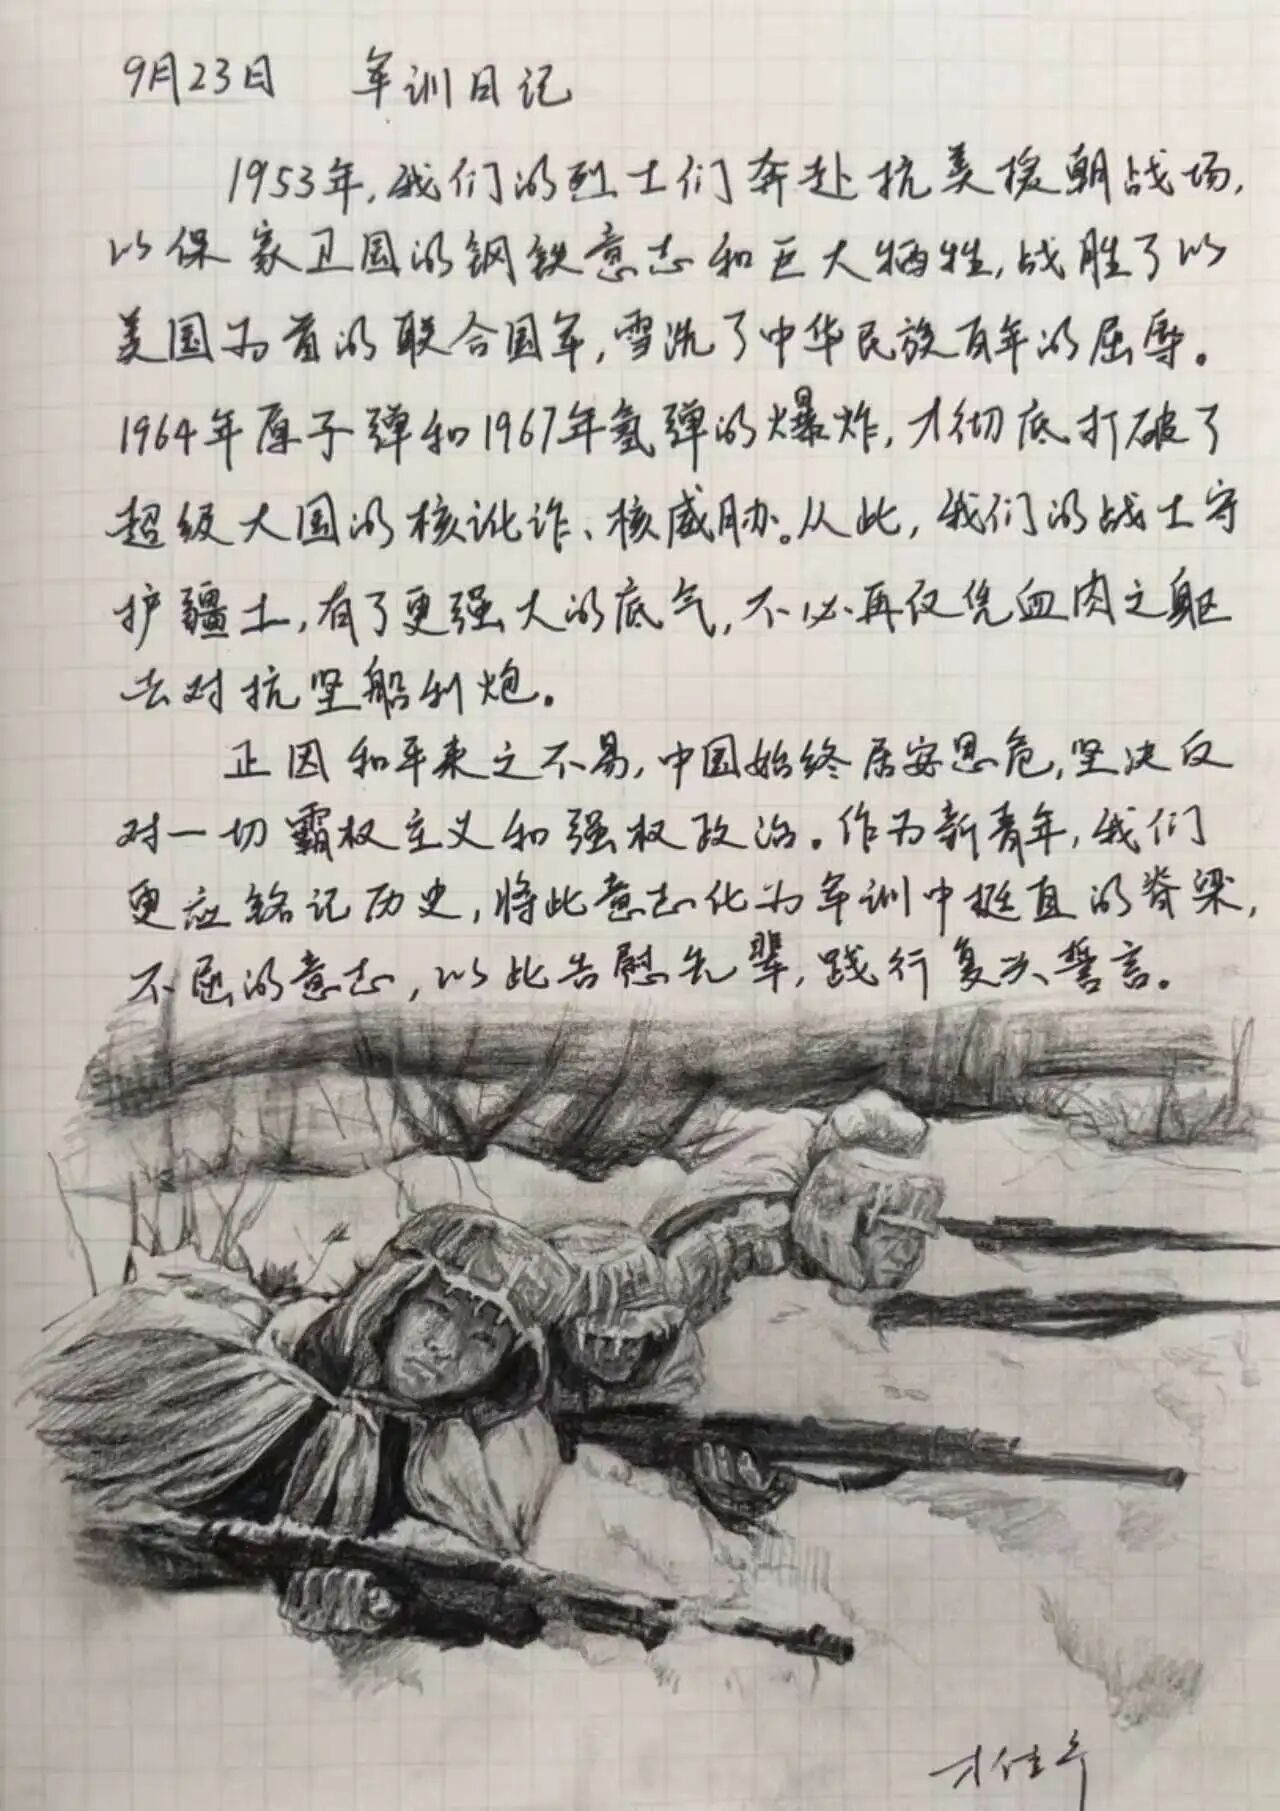 9月23日 军训日记
1953年,我们的烈士们奔赴抗美援朝战场,
以保家卫国的钢铁意志和巨大牺牲,战胜了以
美国为首的联合国军,雪洗了中华民族百年的屈辱。
1964年原子弹和1967年氢弹的爆炸,才彻底打破了
超级大国的核讹诈、核威胁。从此,我们的战士守
护疆土,有了更强大的底气,不必再仅凭血肉之躯
去对抗坚船利炮。
正因和平来之不易,中国始终居安思危,坚决反
对一切霸权主义和强权政治。作为新青年,我们
更应铭记历史,将此意志化为军训中挺直的脊梁,
不屈的意志,以此告慰先辈,践行复兴誓言。